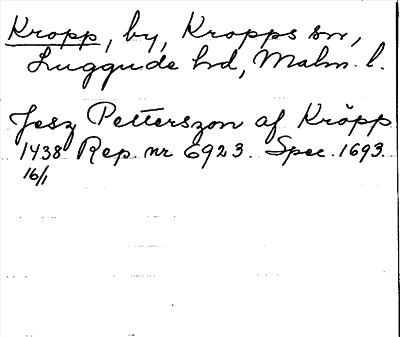 Kropp, by, Kropps sn,
Luggude hd, Malm. l.
Jesz Petterszon af Kröpp
1438 Rep. nr 6923. Spec. 1693.
16/1